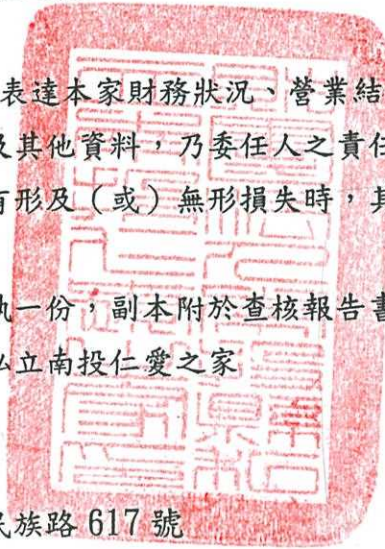 表達本家財務狀況、營業結
及其他資料，乃委任人之責任
有形及（或）無形損失時，其
執一份，副本附於查核報告書
私立南投仁愛之家
民族路 617 號